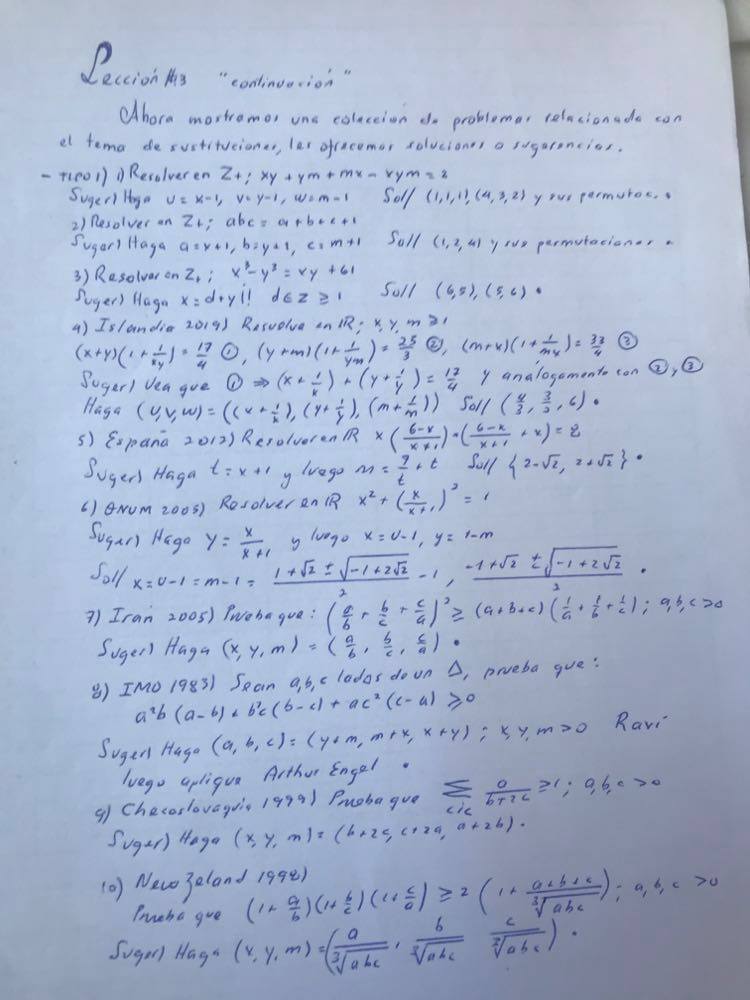 Lección #13 "continuación"
Ahora mostramos una coleccion de problemas relacionada con
el tema de sustituciones, les ofrecemos soluciones o sugerencias.
- TIPO 1) 1) Resolver en Z+; xy + ym + mx - xym = 2
Suger) Haga u = x-1, v = y-1, w = m-1 Sol/ (1,1,1), (4,3,2) y sus permutac. •
2) Resolver en Z+; abc = a+b+c+1
Suger) Haga a = x+1, b = y+1, c = m+1 Sol/ (1,2,4) y sus permutaciones •
3) Resolver en Z+; x³-y³ = xy + 61
Suger) Haga x = d+y!! d ∈ Z ≥ 1 Sol/ (6,5), (5,6) •
4) Islandia 2019) Resuelva en IR; x, y, m ≥ 1
(x+y)(1+1/xy) = 17/4 ①, (y+m)(1+1/ym) = 25/3 ②, (m+x)(1+1/mx) = 33/4 ③
Suger) Vea que ① ⇒ (x+1/x) + (y+1/y) = 17/4 y análogamente con ② y ③
Haga (u,v,w) = ((x+1/x), (y+1/y), (m+1/m)) Sol/ (4/3, 3/2, 6) •
5) España 2012) Resolver en IR x(6-x/x+1)•(6-x/x+1 + x) = 8
Suger) Haga t = x+1 y luego m = 7/t + t Sol/ {2-√2, 2+√2} •
6) ONUM 2005) Resolver en IR x² + (x/x+1)² = 1
Suger) Haga y = x/x+1 y luego x = u-1, y = 1-m
Sol/ x = u-1 = m-1 = 1+√2 ± √-1+2√2/2 - 1, -1+√2 ± √-1+2√2/2 •
7) Iran 2005) Prueba que: (a/b + b/c + c/a)² ≥ (a+b+c)(1/a + 1/b + 1/c); a,b,c>0
Suger) Haga (x, y, m) = (a/b, b/c, c/a) •
8) IMO 1983) Sean a,b,c lados de un Δ, prueba que:
a²b(a-b) + b²c(b-c) + ac²(c-a) ≥ 0
Suger) Haga (a, b, c) = (y+m, m+x, x+y); x, y, m > 0 Ravi
luego aplique Arthur Engel •
9) Checoslovaquia 1999) Prueba que Σ cic a/b+2c ≥ 1; a,b,c > 0
Suger) Haga (x, y, m) = (b+2c, c+2a, a+2b) •
10) New Zeland 1998)
Prueba que (1+a/b)(1+b/c)(1+c/a) ≥ 2(1+ a+b+c/³√abc); a,b,c > 0
Suger) Haga (x, y, m) = (a/³√abc, b/³√abc c/³√abc) •